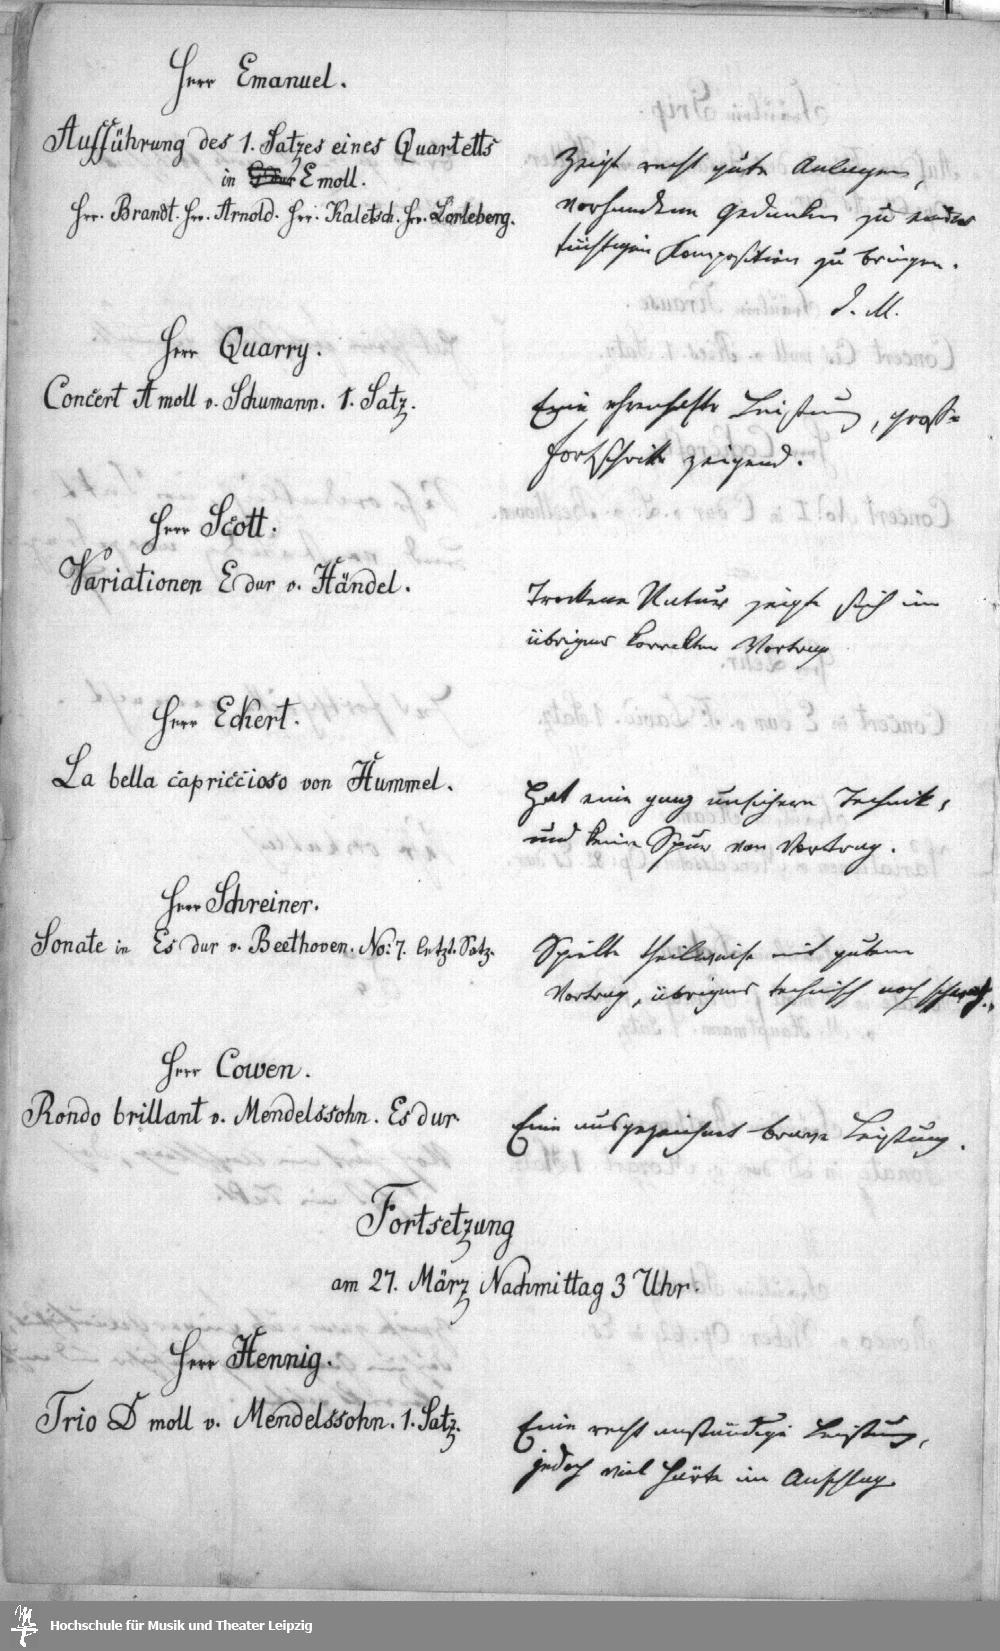 Herr Emanuel.
Aufführung des 1. Satzes eines Quartetts
in E moll.
Hrr. Brandt. Hr. Arnold. Hr. Kaletsch. Hr. Lorleberg.
Zeigt recht gute Anlagen,
vorhandene Gedanken zu
tüchtigen Komposition zu bringen.
J. M.
Herr Quarry.
Concert A moll v. Schumann. 1. Satz.
Eine ehrenhafte Leistung, große
Fortschritte zeigend.
Herr Scott.
Variationen E dur v. Händel.
Trockene Natur zeigte sich im
übrigens korrekten Vortrag
Herr Eckert.
La bella capriccioso von Hummel.
Hat eine ganz unsichere Technik,
und keine Spur von Vortrag.
Herr Schreiner.
Sonate in Es dur v. Beethoven. No: 7. letzt. Satz.
Spielte theilweise mit gutem
Vortrag, übrigens technisch noch schwach.
Herr Cowen.
Rondo brillant v. Mendelssohn. Es dur
Eine ausgezeichnet brave Leistung.
Fortsetzung
am 27. März Nachmittag 3 Uhr.
Herr Hennig.
Trio D moll v. Mendelssohn. 1. Satz.
Eine recht anständige Leistung,
jedoch viel Härte im Anschlag
Hochschule für Musik und Theater Leipzig